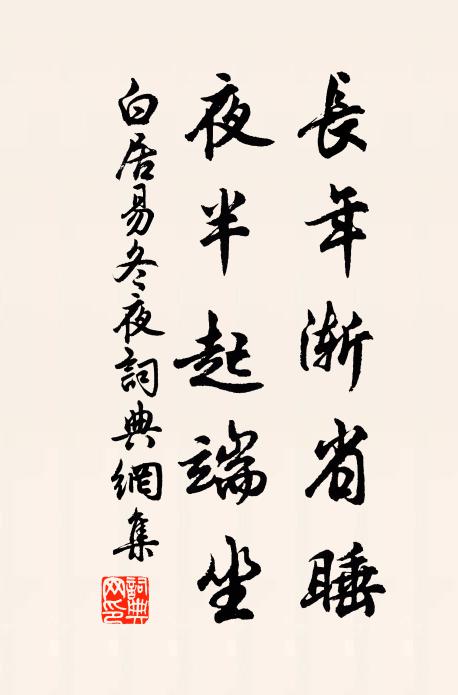 長年漸省睡
夜半起端坐
白居易冬夜詞典網集
詞典网印